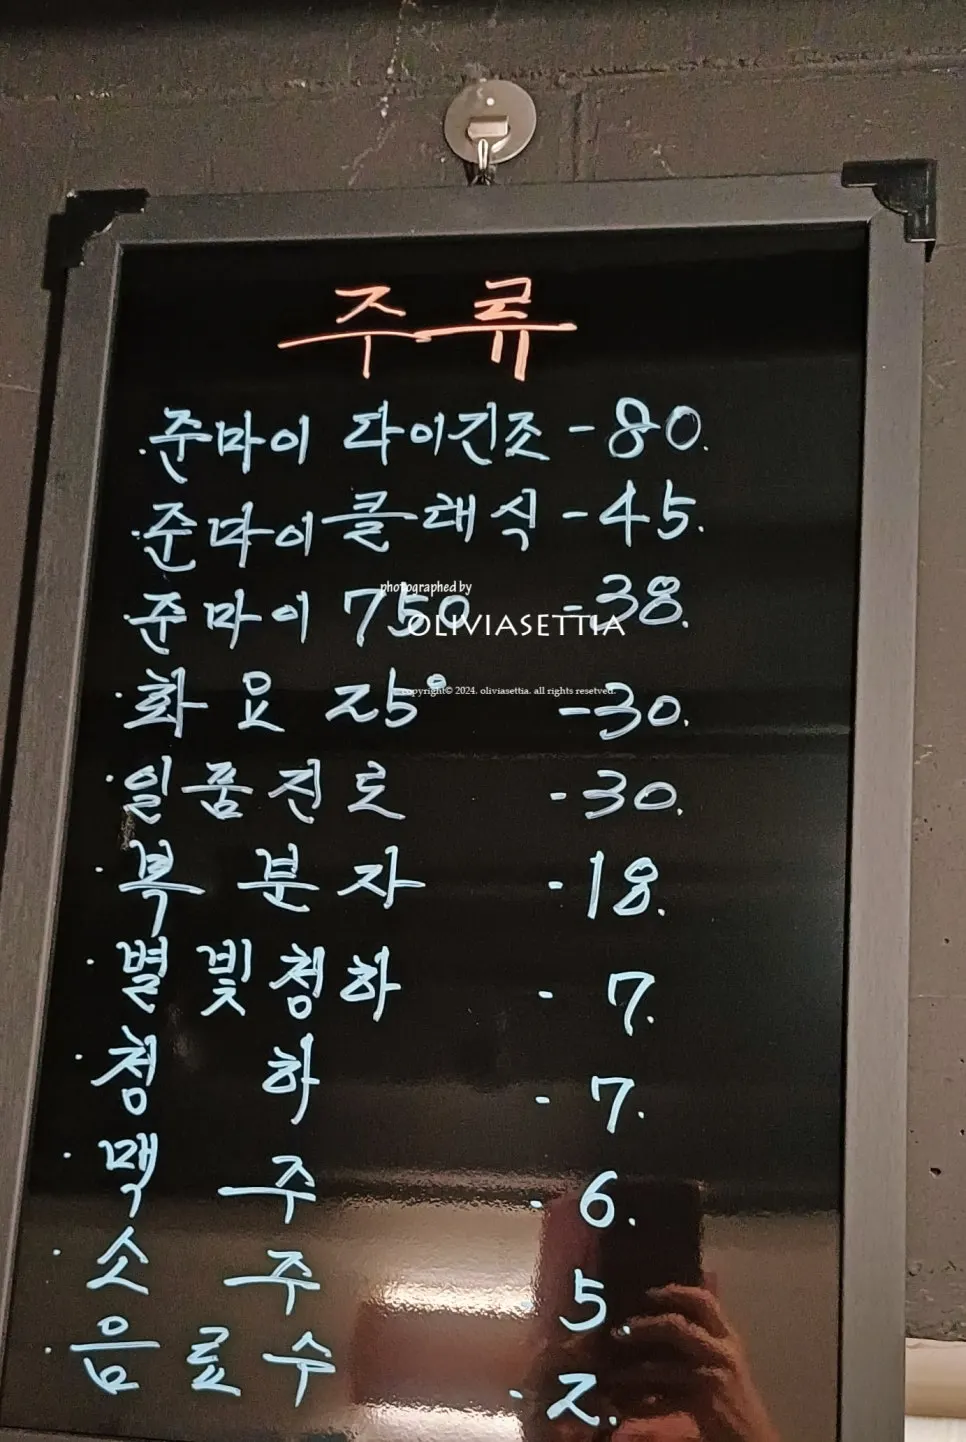 주류
·준마이 다이긴죠 - 80.
·준마이 클래식 - 45.
·준마이 750 - 38.
·화요 25° - 30.
·일품진로 - 30.
·복분자 - 18.
·별빛청하 - 7.
·청하 - 7.
·맥주 - 6.
·소주 - 5.
·음료수 - 2.
photographed by
OLIVIASETTIA
copyright© 2024. oliviasettia. all rights reserved.